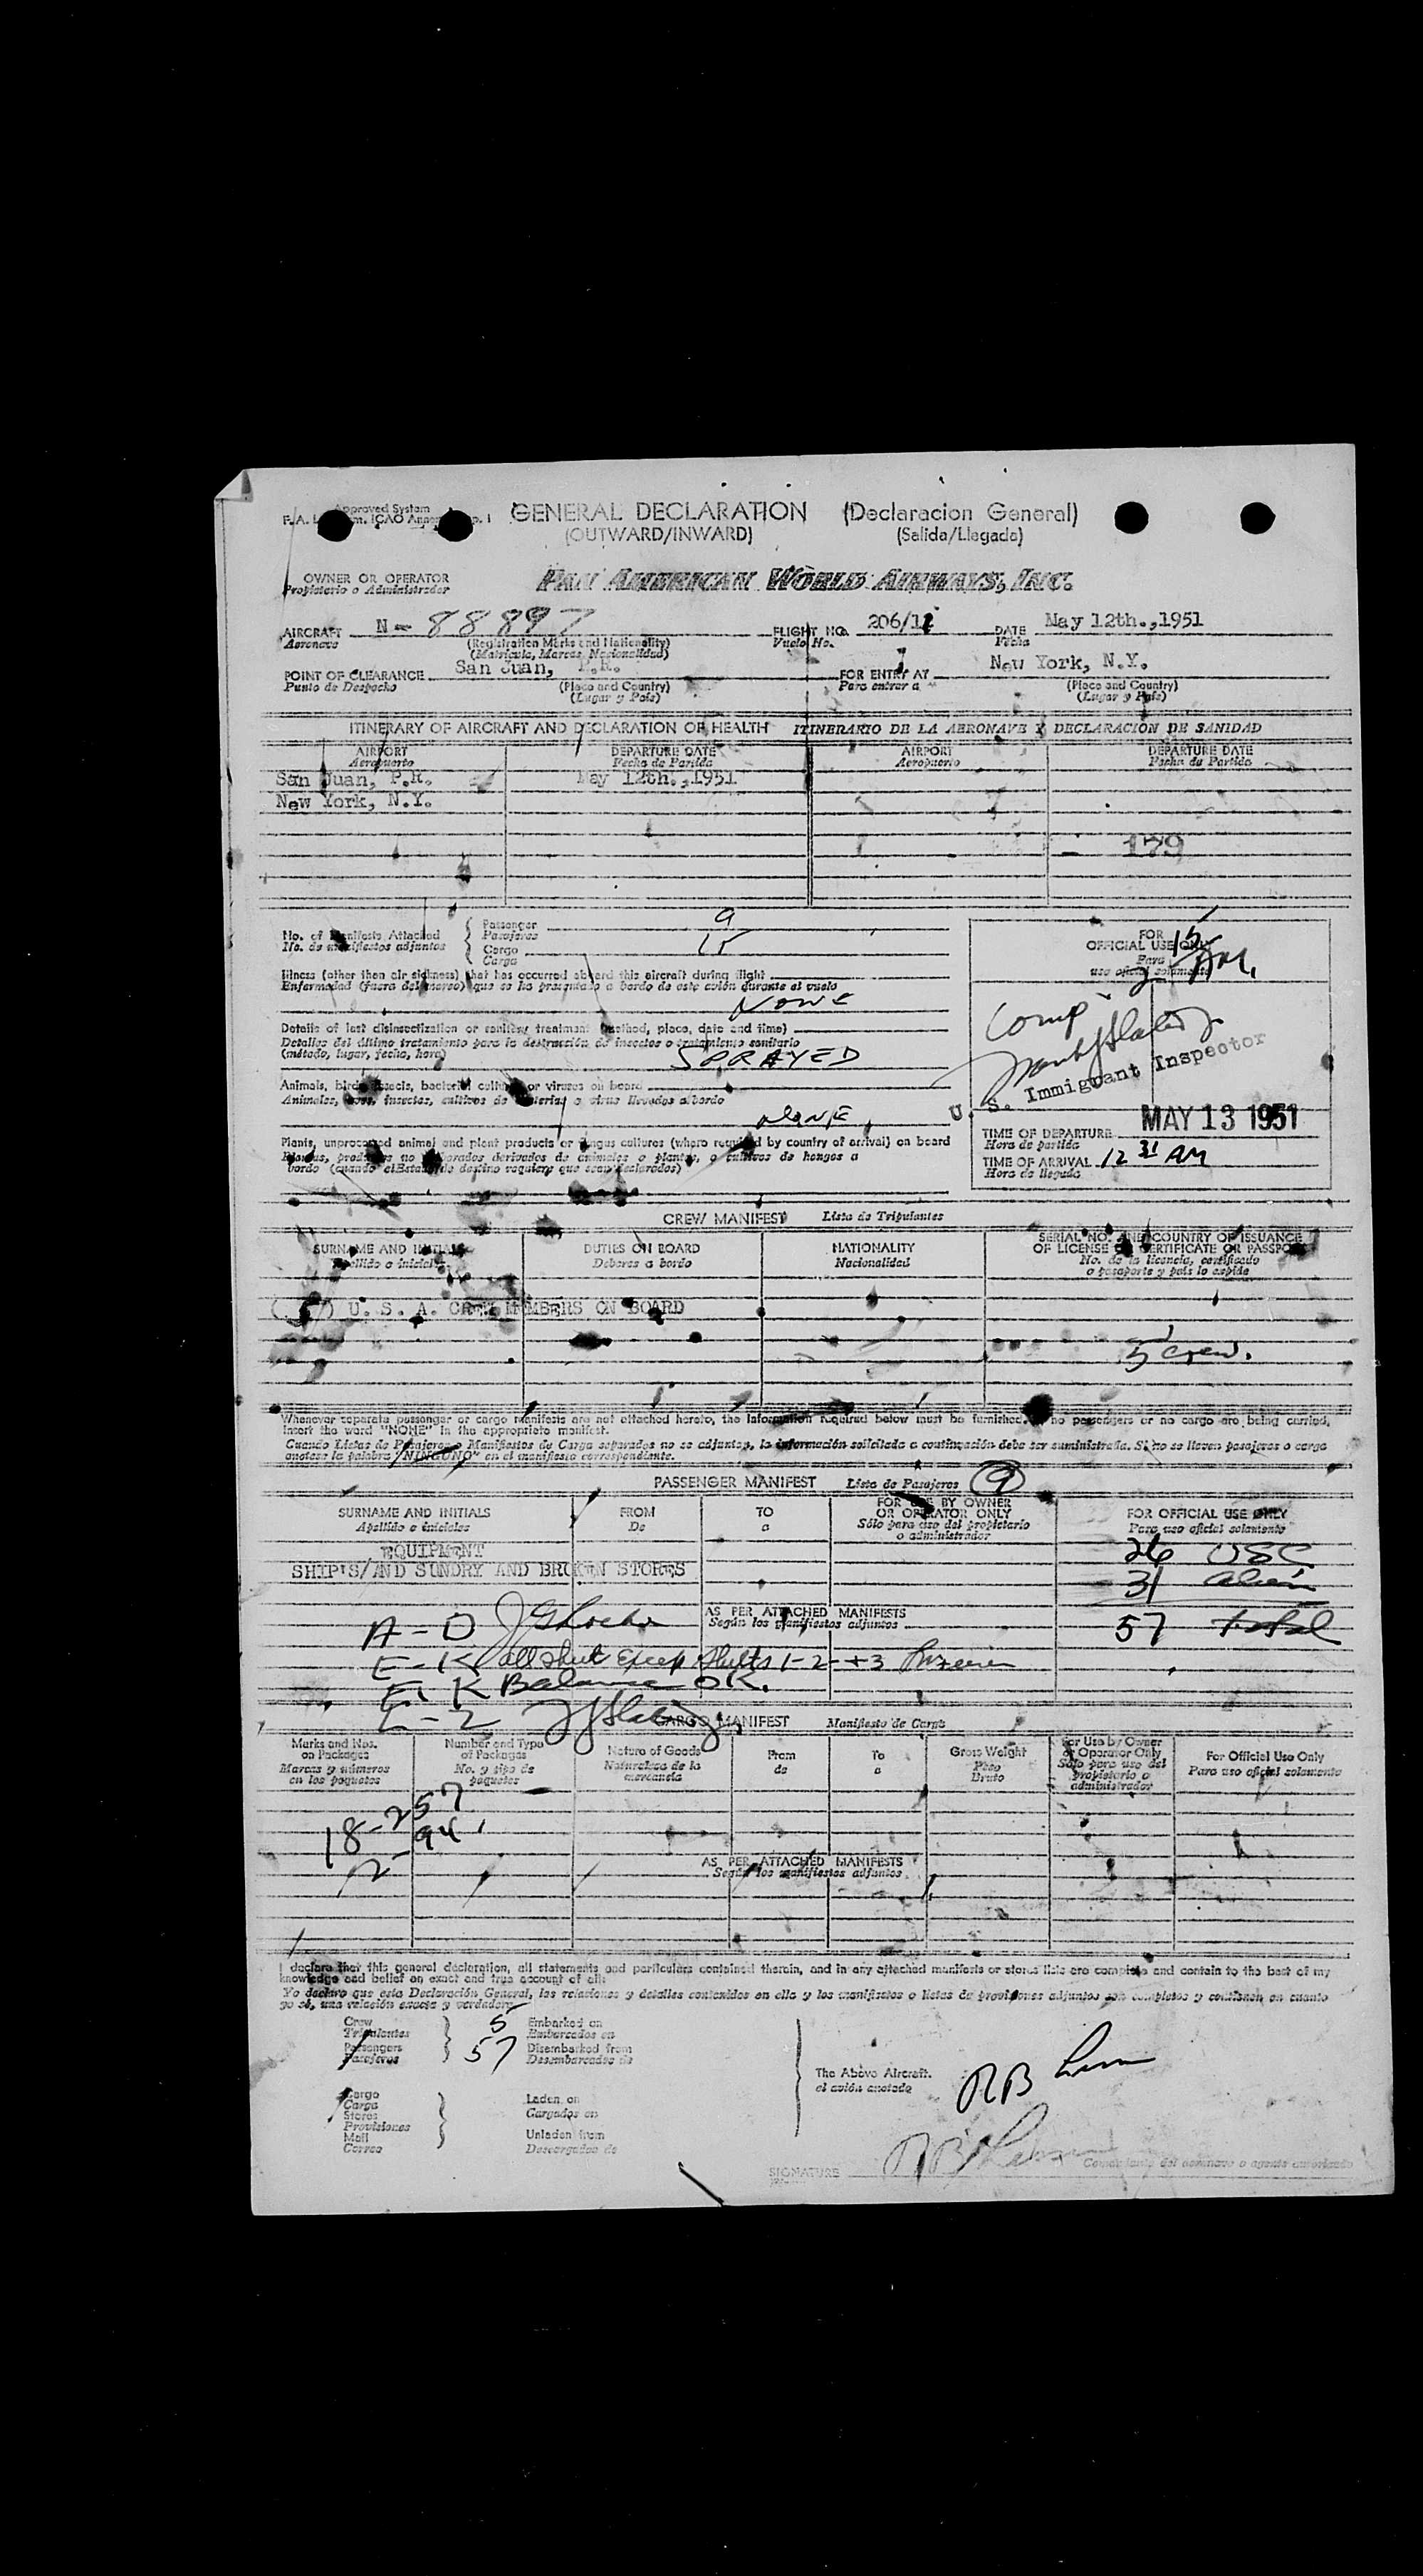 Approved System
GENERAL DECLARATION (Declaracion General)
(OUTWARD/INWARD) (Salida/Llegada)
OWNER OR OPERATOR
Propietario o Administrador
PAN AMERICAN WORLD AIRWAYS, INC.
AIRCRAFT N-88897 FLIGHT NO. 206/12 DATE May 12th.,1951
Aeronave (Registration Marks and Nationality) Vuelo No. Fecha
(Matricula, Marcas, Nacionalidad)
POINT OF CLEARANCE San Juan, P.R. FOR ENTRY AT New York, N.Y.
Punto de Despacho (Place and Country) Para entrar a (Place and Country)
(Lugar y País) (Lugar y País)
ITINERARY OF AIRCRAFT AND DECLARATION OF HEALTH ITINERARIO DE LA AERONAVE Y DECLARACION DE SANIDAD
AIRPORT DEPARTURE DATE AIRPORT DEPARTURE DATE
Aeropuerto Fecha de Partida Aeropuerto Fecha de Partida
San Juan, P.R. May 12th.,1951
New York, N.Y.
179
No. of Manifests Attached
No. de manifiestos adjuntos
Passenger 9
Pasajeros
Cargo 15
Carga
Illness (other than air sickness) that has occurred aboard this aircraft during flight
Enfermedad (fuera del mareo) que se ha producido a bordo de este avión durante el vuelo
NONE
Details of last disinsectization or sanitary treatment (method, place, date and time)
Detalles del último tratamiento para la destrucción de insectos o tratamiento sanitario
(método, lugar, fecha, hora) SPRAYED
Animals, birds, insects, bacterial cultures or viruses on board
Animales, aves, insectos, cultivos de bacterias o virus llevados a bordo
NONE
Plants, unprocessed animal and plant products or fungus cultures (where required by country of arrival) on board
FOR
OFFICIAL USE ONLY
Para
uso oficial solamente
Comp
U. S. Immigrant Inspector
MAY 13 1951
TIME OF DEPARTURE
Hora de partida
TIME OF ARRIVAL 12 31 AM
Hora de llegada
CREW MANIFEST Lista de Tripulantes
SURNAME AND INITIALS DUTIES ON BOARD NATIONALITY SERIAL NO. AND COUNTRY OF ISSUANCE
Apellido e iniciales Deberes a bordo Nacionalidad OF LICENSE OR CERTIFICATE OR PASSPORT
No. de la licencia, certificado
o pasaporte y país lo expide
(5) U. S. A. CREW MEMBERS ON BOARD
5 crew.
Whenever separate passenger or cargo manifests are not attached hereto, the information required below must be furnished. If no passengers or no cargo are being carried,
insert the word "NONE" in the appropriate manifest.
Cuando Listas de Pasajeros o Manifiestos de Carga separados no se adjuntan, la información solicitada a continuación debe ser suministrada. Si no se llevan pasajeros o carga
anótese la palabra "NINGUNO" en el manifiesto correspondiente.
PASSENGER MANIFEST Lista de Pasajeros 9
SURNAME AND INITIALS FROM TO FOR USE BY OWNER OR OPERATOR ONLY FOR OFFICIAL USE ONLY
Apellido e iniciales De a Sólo para uso del propietario o administrador Para uso oficial solamente
EQUIPMENT
SHIP'S/AND SUNDRY AND BROKEN STORES
26 USC
31 alien
57 total
AS PER ATTACHED MANIFESTS
Según los manifiestos adjuntos
A-D
E-K all
E-K Balance OK.
CARGO MANIFEST Manifiesto de Carga
Marks and Nos. on Packages Number and Type of Packages Nature of Goods From To Gross Weight For Use by Owner or Operator Only For Official Use Only
Marcas y números en los paquetes No. y tipo de paquetes Naturaleza de la mercancía de a Peso Bruto Sólo para uso del propietario o administrador Para uso oficial solamente
18-257
12-94
AS PER ATTACHED MANIFESTS
Según los manifiestos adjuntos
I declare that this general declaration, all statements and particulars contained therein, and in any attached manifests or stores lists are complete and contain to the best of my
knowledge and belief an exact and true account of all:
Yo declaro que esta Declaración General, las relaciones y detalles contenidos en ella y los manifiestos o listas de provisiones adjuntos son completos y contienen en cuanto
yo sé, una relación exacta y verdadera
Crew 5 Embarked on
Tripulantes Embarcados en
Passengers 57 Disembarked from
Pasajeros Desembarcados de
The Above Aircraft.
el avión anotado
Cargo Laden on
Carga Cargados en
Stores
Provisiones
Mail Unladen from
Correo Descargados de
SIGNATURE